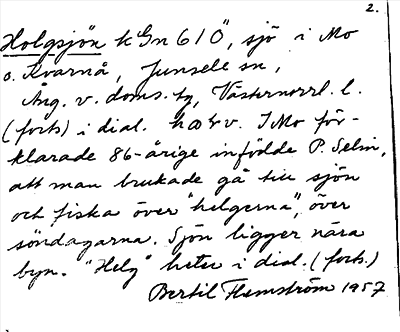 2.
Holgsjön k Gn 6 / Ö, sjö i Mo
o. Kvarnå, Junsele sn,
Ång. v. doms. tg, Västernorrl. l.
(forts) i dial. I Mo för-
klarade 86-årige infödde P. Selin,
att man brukade gå till sjön
och fiska över "helgerna", över
söndagarna. Sjön ligger nära
byn. "Helg" heter i dial. (forts.)
Bertil Flemström 1957